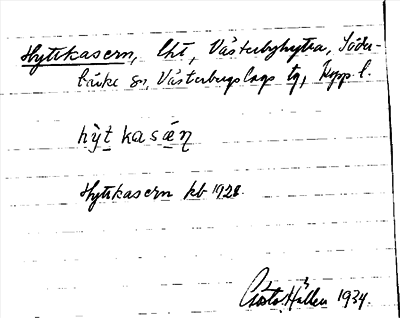 Hyttkasern, lht, Västerbyhytta, Söder-
bärke sn, Västerbergslags tg, Kopp. l.
hỳt kasǽṇ
Hyttkasern kb 1928.
Gösta Hallén 1934.